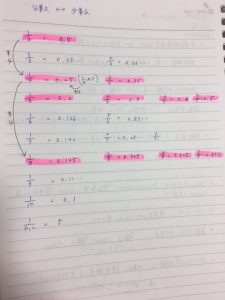 分数 ↔ 小数
1/2 = 0.5
1/3 = 0.33… 2/3 = 0.66…
1/4 = 0.25 3/4 = 0.75
1/5 = 0.2 2/5 = 0.4 3/5 = 0.6 4/5 = 0.8
1/6 = 0.166 5/6 = 0.83…
1/7 = 0.142
1/8 = 0.125 3/8 = 0.375 5/8 = 0.625 7/8 = 0.875
1/9 = 0.11…
1/10 = 0.1
1/0.2 = 5